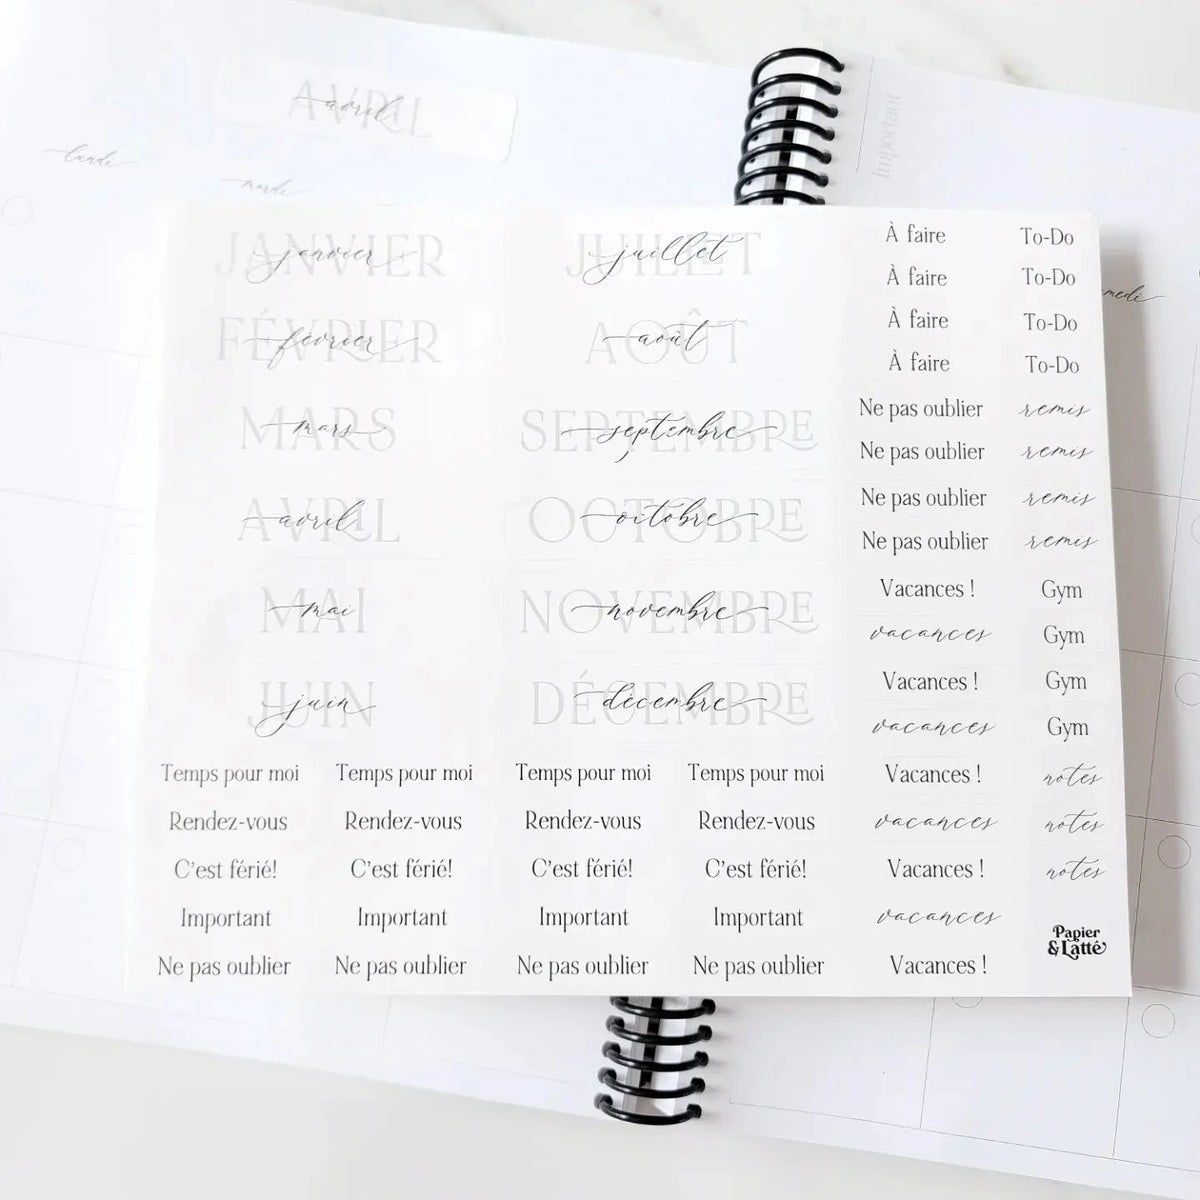 AVRIL
avril
lundi
mardi
Important
medi
JANVIER
janvier
FÉVRIER
février
MARS
mars
AVRIL
avril
MAI
mai
JUIN
juin
JUILLET
juillet
AOÛT
août
SEPTEMBRE
septembre
OCTOBRE
octobre
NOVEMBRE
novembre
DÉCEMBRE
décembre
À faire To-Do
À faire To-Do
À faire To-Do
À faire To-Do
Ne pas oublier remis
Ne pas oublier remis
Ne pas oublier remis
Ne pas oublier remis
Vacances ! Gym
vacances Gym
Vacances ! Gym
vacances Gym
Vacances ! notes
vacances notes
Vacances ! notes
vacances
Vacances !
Temps pour moi Temps pour moi Temps pour moi Temps pour moi
Rendez-vous Rendez-vous Rendez-vous Rendez-vous
C'est férié! C'est férié! C'est férié! C'est férié!
Important Important Important Important
Ne pas oublier Ne pas oublier Ne pas oublier Ne pas oublier
Papier
& Latté